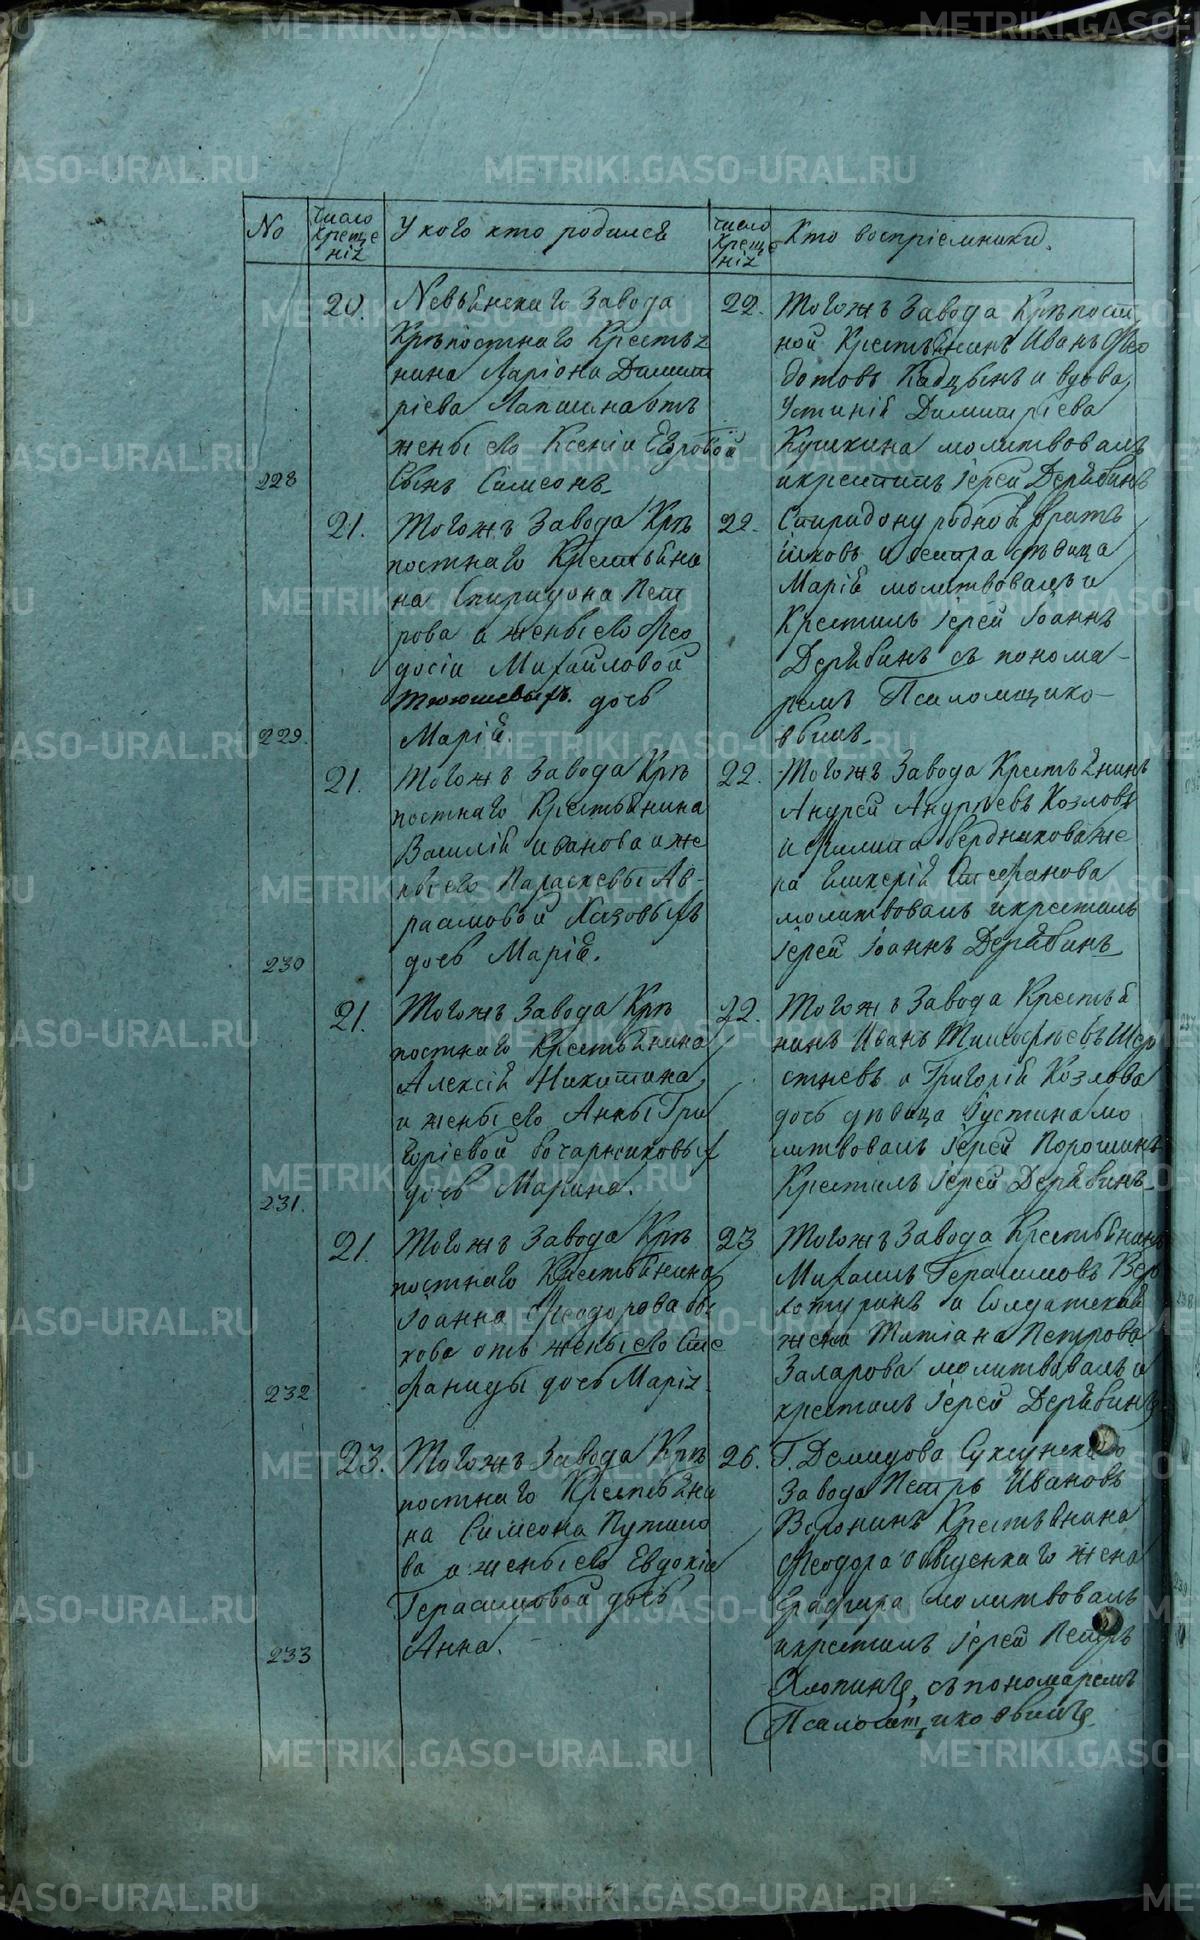 No
Число Креще нія
У кого кто родился
Число Креще нія
Кто воспріемники.
228
20.
Невьянскаго Завода
Крѣпостнаго Крестья
нина Ларіона Димит
ріева Лапшина отъ
жены его Ксеніи Егоровой
Сынъ Симеонъ
22.
Тогожъ Завода Крѣпост
ной Крестьянинъ Иванъ Фео
дотовъ и вдова
Устинія Димитріева
Кушкина молитвовалъ
и крестилъ Іерей Дерябинъ
229.
21.
Тогожъ Завода Крѣ
постнаго Крестьяни
на Спиридона Пет
рова и жены его Фео
досіи Михайловой
дочь
Марія.
22.
Спиридону родной братъ
Іаковъ и сестра дѣвица
Марія молитвовалъ и
Крестилъ Іерей Іоаннъ
Дерябинъ съ понома-
ремъ Псаломщико-
вымъ
230
21.
Тогожъ Завода Крѣ
постнаго Крестьянина
Василія Иванова и же
ны его Параскевы Ав-
раамовой Хазовыхъ
дочь Марія.
22.
Тогожъ Завода Крестьянинъ
Андрей Андреевъ Козловъ
и Филипа Бердникова же
на Гликерія Стефанова
молитвовалъ и крестилъ
Іерей Іоаннъ Дерябинъ
231.
21.
Тогожъ Завода Крѣ
постнаго Крестьянина
Алексія Никитина
и жены его Анны Гри
горіевой Бочарниковых
дочь Марина.
22.
Тогожъ Завода Крестья
нинъ Иванъ Тимофеевъ Шер
стневъ и Григорія Козлова
дочь дѣвица Іустина мо
литвовалъ Іерей Порошинъ
Крестилъ Іерей Дерябинъ
232
21.
Тогожъ Завода Крѣ
постнаго Крестьянина
Іоанна Феодорова
кова отъ жены его Сте
фаниды дочь Марія
23
Тогожъ Завода Крестьянинъ
Михаилъ Герасимовъ Вер
хотуринъ и Солдатская
жена Татіана Петрова
Захарова молитвовалъ и
крестилъ Іерей Дерябинъ
233
23.
Тогожъ Завода Крѣ
постнаго Крестьяни
на Симеона Путило
ва и жены его Евдокіи
Герасимовой дочь
Анна.
26.
Г. Демидова Суксунскаго
Завода Петръ Ивановъ
Воронинъ Крестьянина
Феодора жена
молитвовалъ
и крестилъ Іерей Петръ
Хлопинъ, съ пономаремъ
Псаломщиковымъ